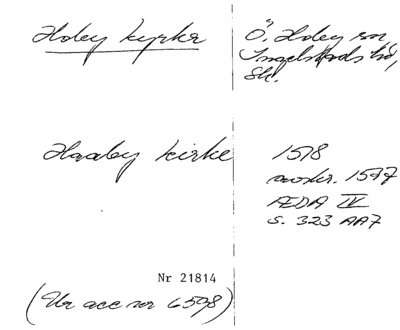 Hoby kyrka
Ö. Hoby sn,
Ingelstads hd,
Sk.
Haaby kirke
1518
ÆDA IV
s. 323 AA7
Nr 21814
(Ur acc nr 6598)